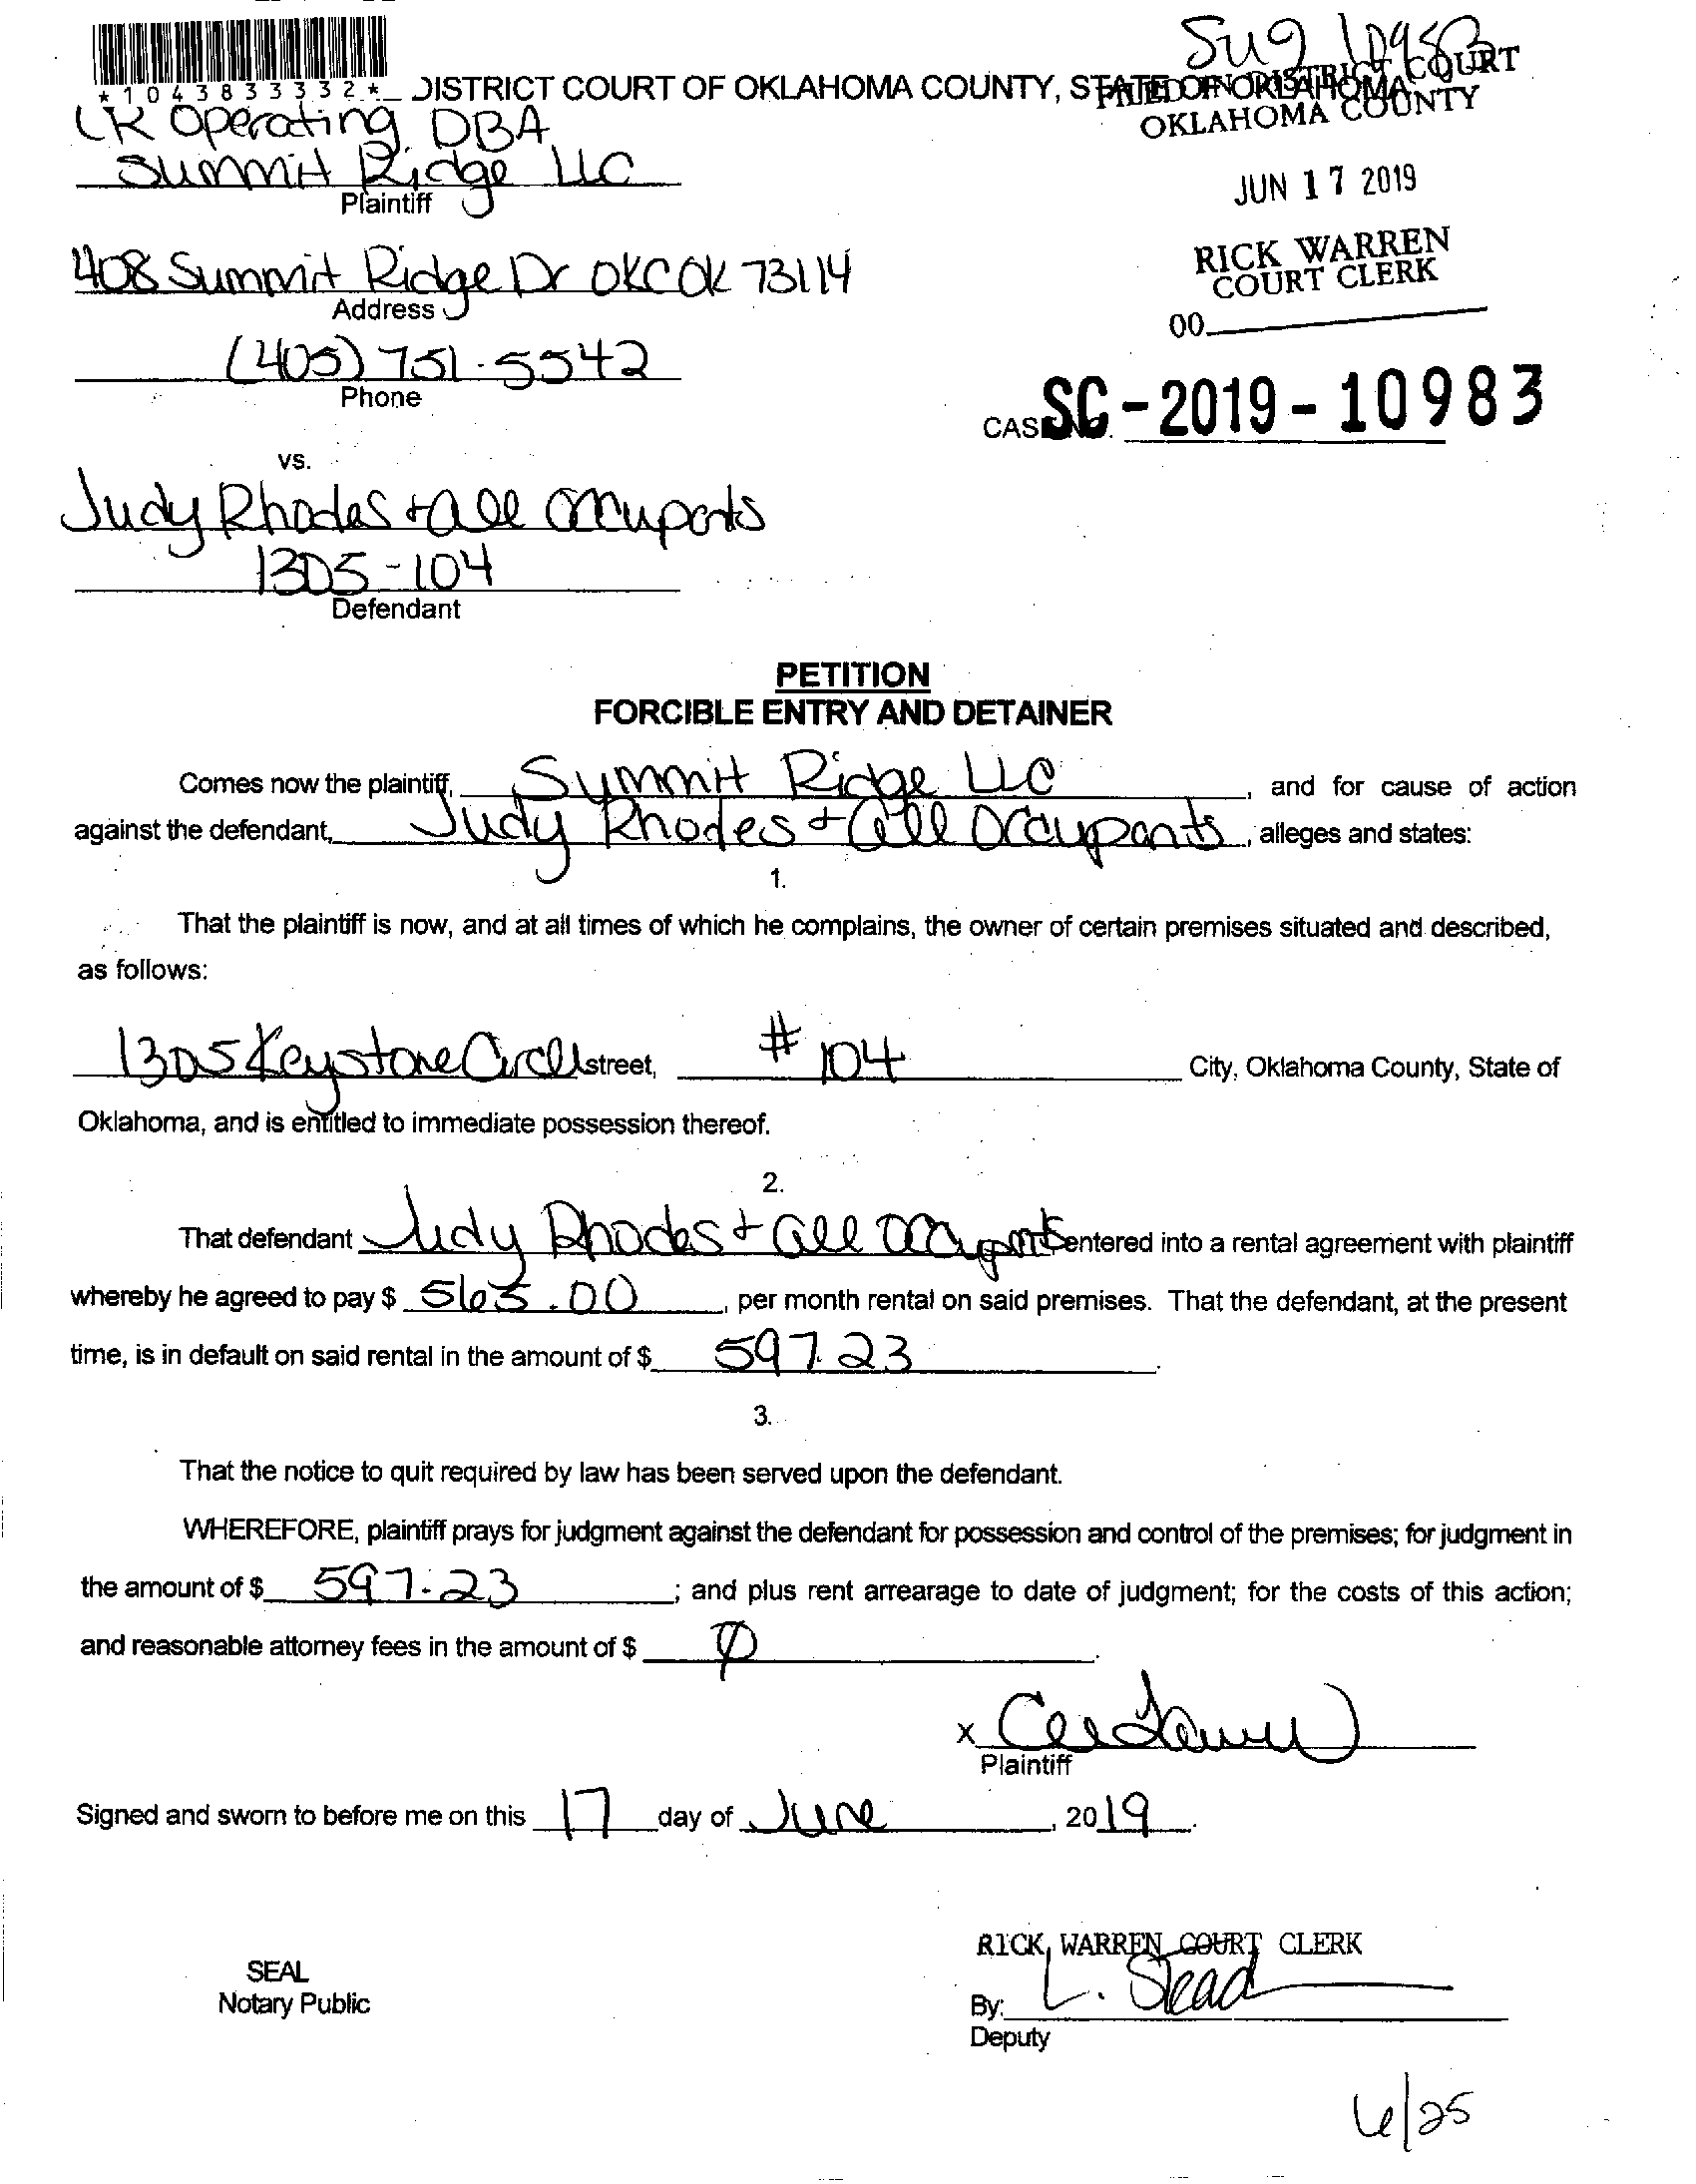 *1043833332*
DISTRICT COURT OF OKLAHOMA COUNTY, STATE OF OKLAHOMA
FILED IN DISTRICT COURT
OKLAHOMA COUNTY
JUN 17 2019
RICK WARREN
COURT CLERK
00
LR Operating DBA
Summit Ridge LLC
Plaintiff
408 Summit Ridge Dr OKC OK 73114
Address
(405) 751-5542
Phone
CASE NO. SC-2019-10983
vs.
Judy Rhodes + all occupants
1305-104
Defendant
PETITION
FORCIBLE ENTRY AND DETAINER
Comes now the plaintiff, Summit Ridge LLC, and for cause of action
against the defendant, Judy Rhodes + all Occupants, alleges and states:
1.
That the plaintiff is now, and at all times of which he complains, the owner of certain premises situated and described,
as follows:
1305 Keystone Circle street, # 104 City, Oklahoma County, State of
Oklahoma, and is entitled to immediate possession thereof.
2.
That defendant Judy Rhodes + all occupants entered into a rental agreement with plaintiff
whereby he agreed to pay $ 563.00, per month rental on said premises. That the defendant, at the present
time, is in default on said rental in the amount of $ 597.23.
3.
That the notice to quit required by law has been served upon the defendant.
WHEREFORE, plaintiff prays for judgment against the defendant for possession and control of the premises; for judgment in
the amount of $ 597.23; and plus rent arrearage to date of judgment; for the costs of this action;
and reasonable attorney fees in the amount of $ Ø.
x
Plaintiff
Signed and sworn to before me on this 17 day of June, 2019.
RICK WARREN COURT CLERK
SEAL
Notary Public
By: L. Stead
Deputy
6/25